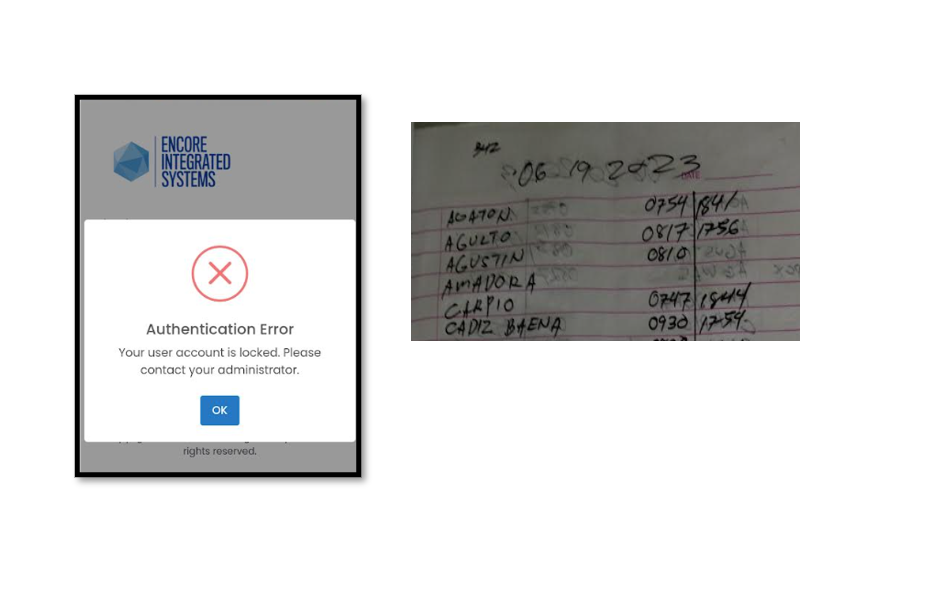 ENCORE
INTEGRATED
SYSTEMS
Authentication Error
Your user account is locked. Please
contact your administrator.
OK
rights reserved.
06 19 2023
DATE
AGATON 0754 1841
AGULTO 0817 1756
AGUSTIN 0810
AMADORA
CARPIO 0747 1844
CADIZ BAENA 0930 1754